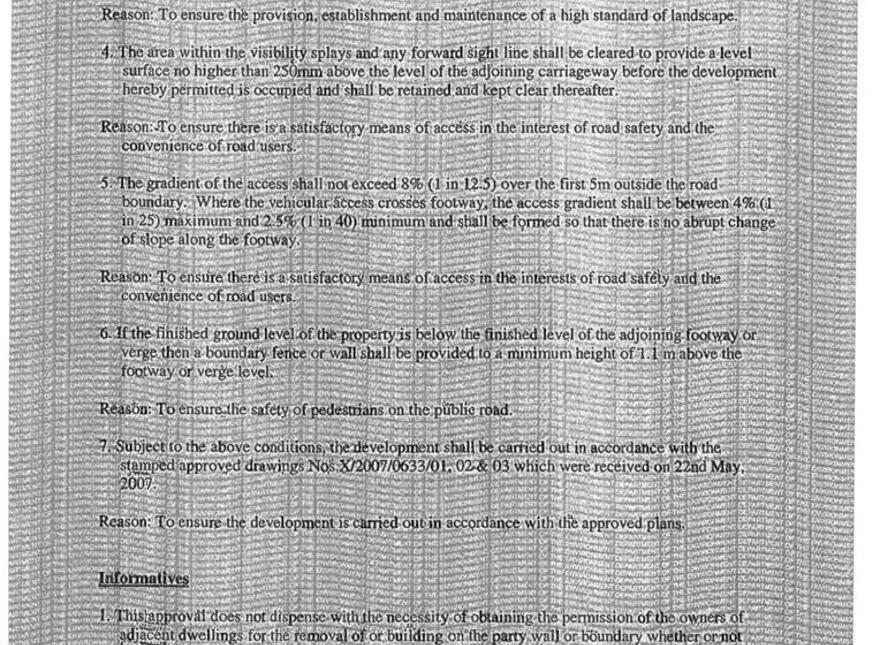 Reason: To ensure the provision, establishment and maintenance of a high standard of landscape.
4. The area within the visibility splays and any forward sight line shall be cleared to provide a level
surface no higher than 250mm above the level of the adjoining carriageway before the development
hereby permitted is occupied and shall be retained and kept clear thereafter.
Reason: To ensure there is a satisfactory means of access in the interest of road safety and the
convenience of road users.
5. The gradient of the access shall not exceed 8% (1 in 12.5) over the first 5m outside the road
boundary. Where the vehicular access crosses footway, the access gradient shall be between 4% (1
in 25) maximum and 2.5% (1 in 40) minimum and shall be formed so that there is no abrupt change
of slope along the footway.
Reason: To ensure there is a satisfactory means of access in the interests of road safety and the
convenience of road users.
6. If the finished ground level of the property is below the finished level of the adjoining footway or
verge then a boundary fence or wall shall be provided to a minimum height of 1.1 m above the
footway or verge level.
Reason: To ensure the safety of pedestrians on the public road.
7. Subject to the above conditions, the development shall be carried out in accordance with the
stamped approved drawings Nos X/2007/0633/01, 02 & 03 which were received on 22nd May,
2007.
Reason: To ensure the development is carried out in accordance with the approved plans.
Informatives
1. This approval does not dispense with the necessity of obtaining the permission of the owners of
adjacent dwellings for the removal of or building on the party wall or boundary whether or not